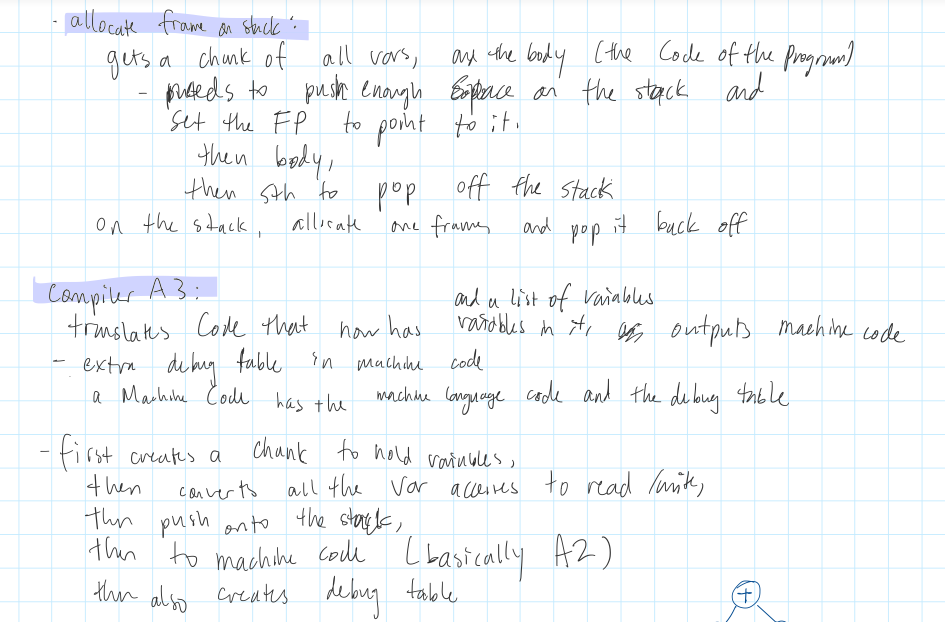 - allocate frame on stack:
gets a chunk of all vars, and the body (the Code of the Program)
- needs to push enough space on the stack and
set the FP to point to it.
then body,
then sth to pop off the stack
on the stack, allocate one frame, and pop it back off
Compiler A3:
and a list of variables
translates Code that now has variables in it, outputs machine code
- extra debug table in machine code
a Machine Code has the machine language code and the debug table
- first creates a chunk to hold variables,
then converts all the Var accesses to read/write,
then push onto the stack,
then to machine code (basically A2)
then also creates debug table
+